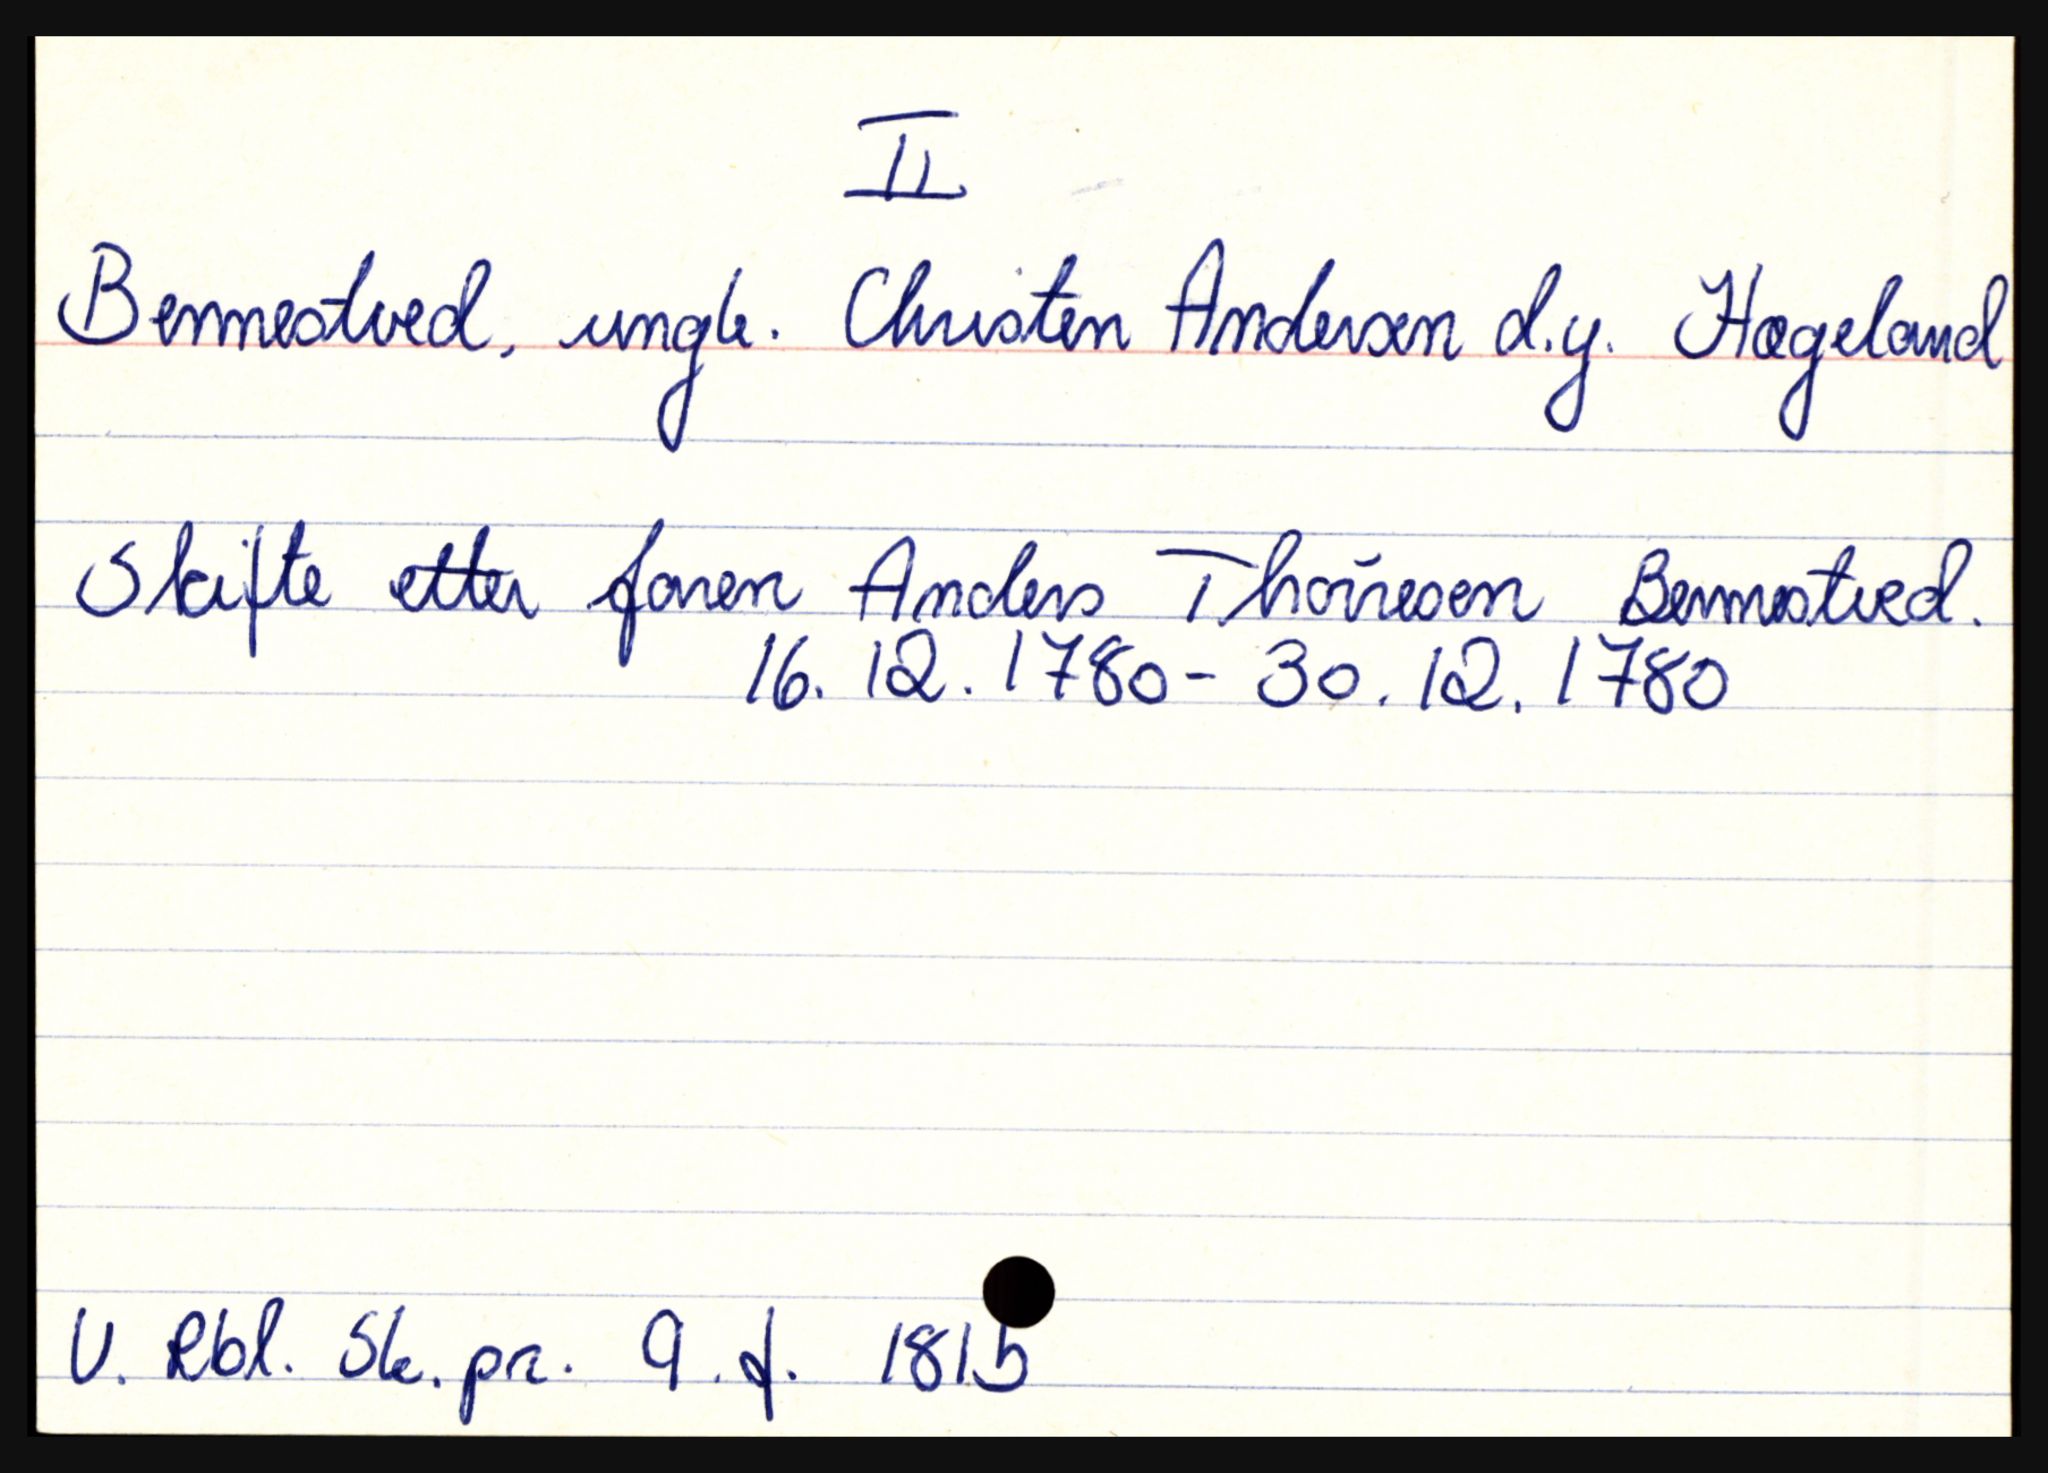 II
Bennestved, ungk. Christen Andersen d.y. Hægeland
Skifte etter faren Anders Thoresen Bennestved.
16. 12. 1780 - 30. 12. 1780
V. Rbl. Sk. pr. 9. f. 1815